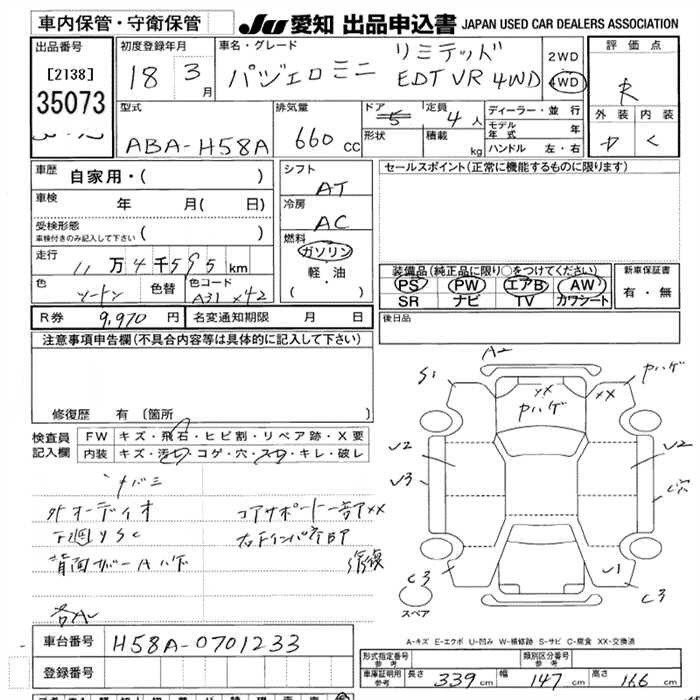 車内保管・守衛保管
JU 愛知 出品申込書 JAPAN USED CAR DEALERS ASSOCIATION
出品番号
[2138]
35073
初度登録年月
18 3月
車名・グレード
パジェロミニ
リミテッド
EDT VR 4WD
2WD
4WD
評価点
R
外装 内装
D C
型式
ABA-H58A
排気量
660 cc
ドア
5
定員
4人
形状
積載
kg
ディーラー・並行
モデル年式 年
ハンドル 左・右
車歴
自家用・( )
車検
年 月( 日)
受検形態
車検付きのみ記入して下さい ( )
走行
11万4千595km
色
ツートン
色替
色コード
A31 X42
シフト
AT
冷房
AC
燃料
ガソリン
軽・油
( )
セールスポイント(正常に機能するものに限ります)
装備品(純正品に限り○をつけてください)
PS PW エアB AW
SR ナビ TV カワシート
新車保証書
有・無
R券 9,970円
名変通知期限 月 日
後日品
注意事項申告欄(不具合内容等は具体的に記入して下さい)
修復歴 有 〔箇所
検査員記入欄
FW キズ・飛石・ヒビ割・リペア跡・X要
内装 キズ・汚レ・コゲ・穴・スレ・キレ・破レ
ナバミ
外オーディオ
下廻りSC
背面カバーAハゲ
各A
コアサポート一部XX
右Fインパネ
修復
A2
S1
Pハゲ
XX
XX
Pハゲ
U2
U3
U2
C穴
C3
U1
C3
スペア
A-キズ E-エクボ U-凹み W-補修跡 S-サビ C-腐食 XX-交換済
車台番号
H58A-0701233
登録番号
形式指定番号
参考
類別区分番号
参考
車庫証明用
参考
長さ 339cm 幅 147cm 高さ 166cm